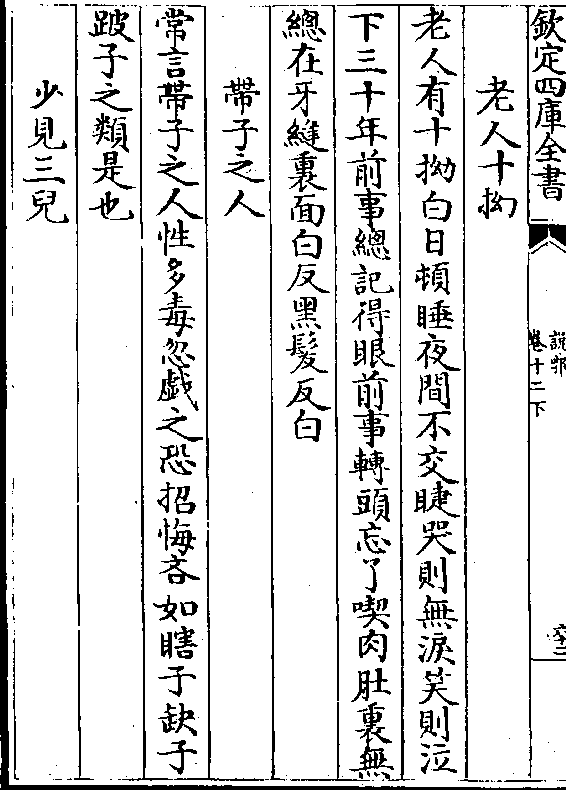 欽定四庫全書
說郛
卷十二下
老人十拗
老人有十拗白日頓睡夜間不交睫哭則無淚笑則泣
下三十年前事總記得眼前事轉頭忘了喫肉肚裏無
總在牙縫裏面白反黑髮反白
帶子之人
常言帶子之人性多毒忽戯之恐招悔吝如瞎子缺子
跛子之類是也
少見三兒